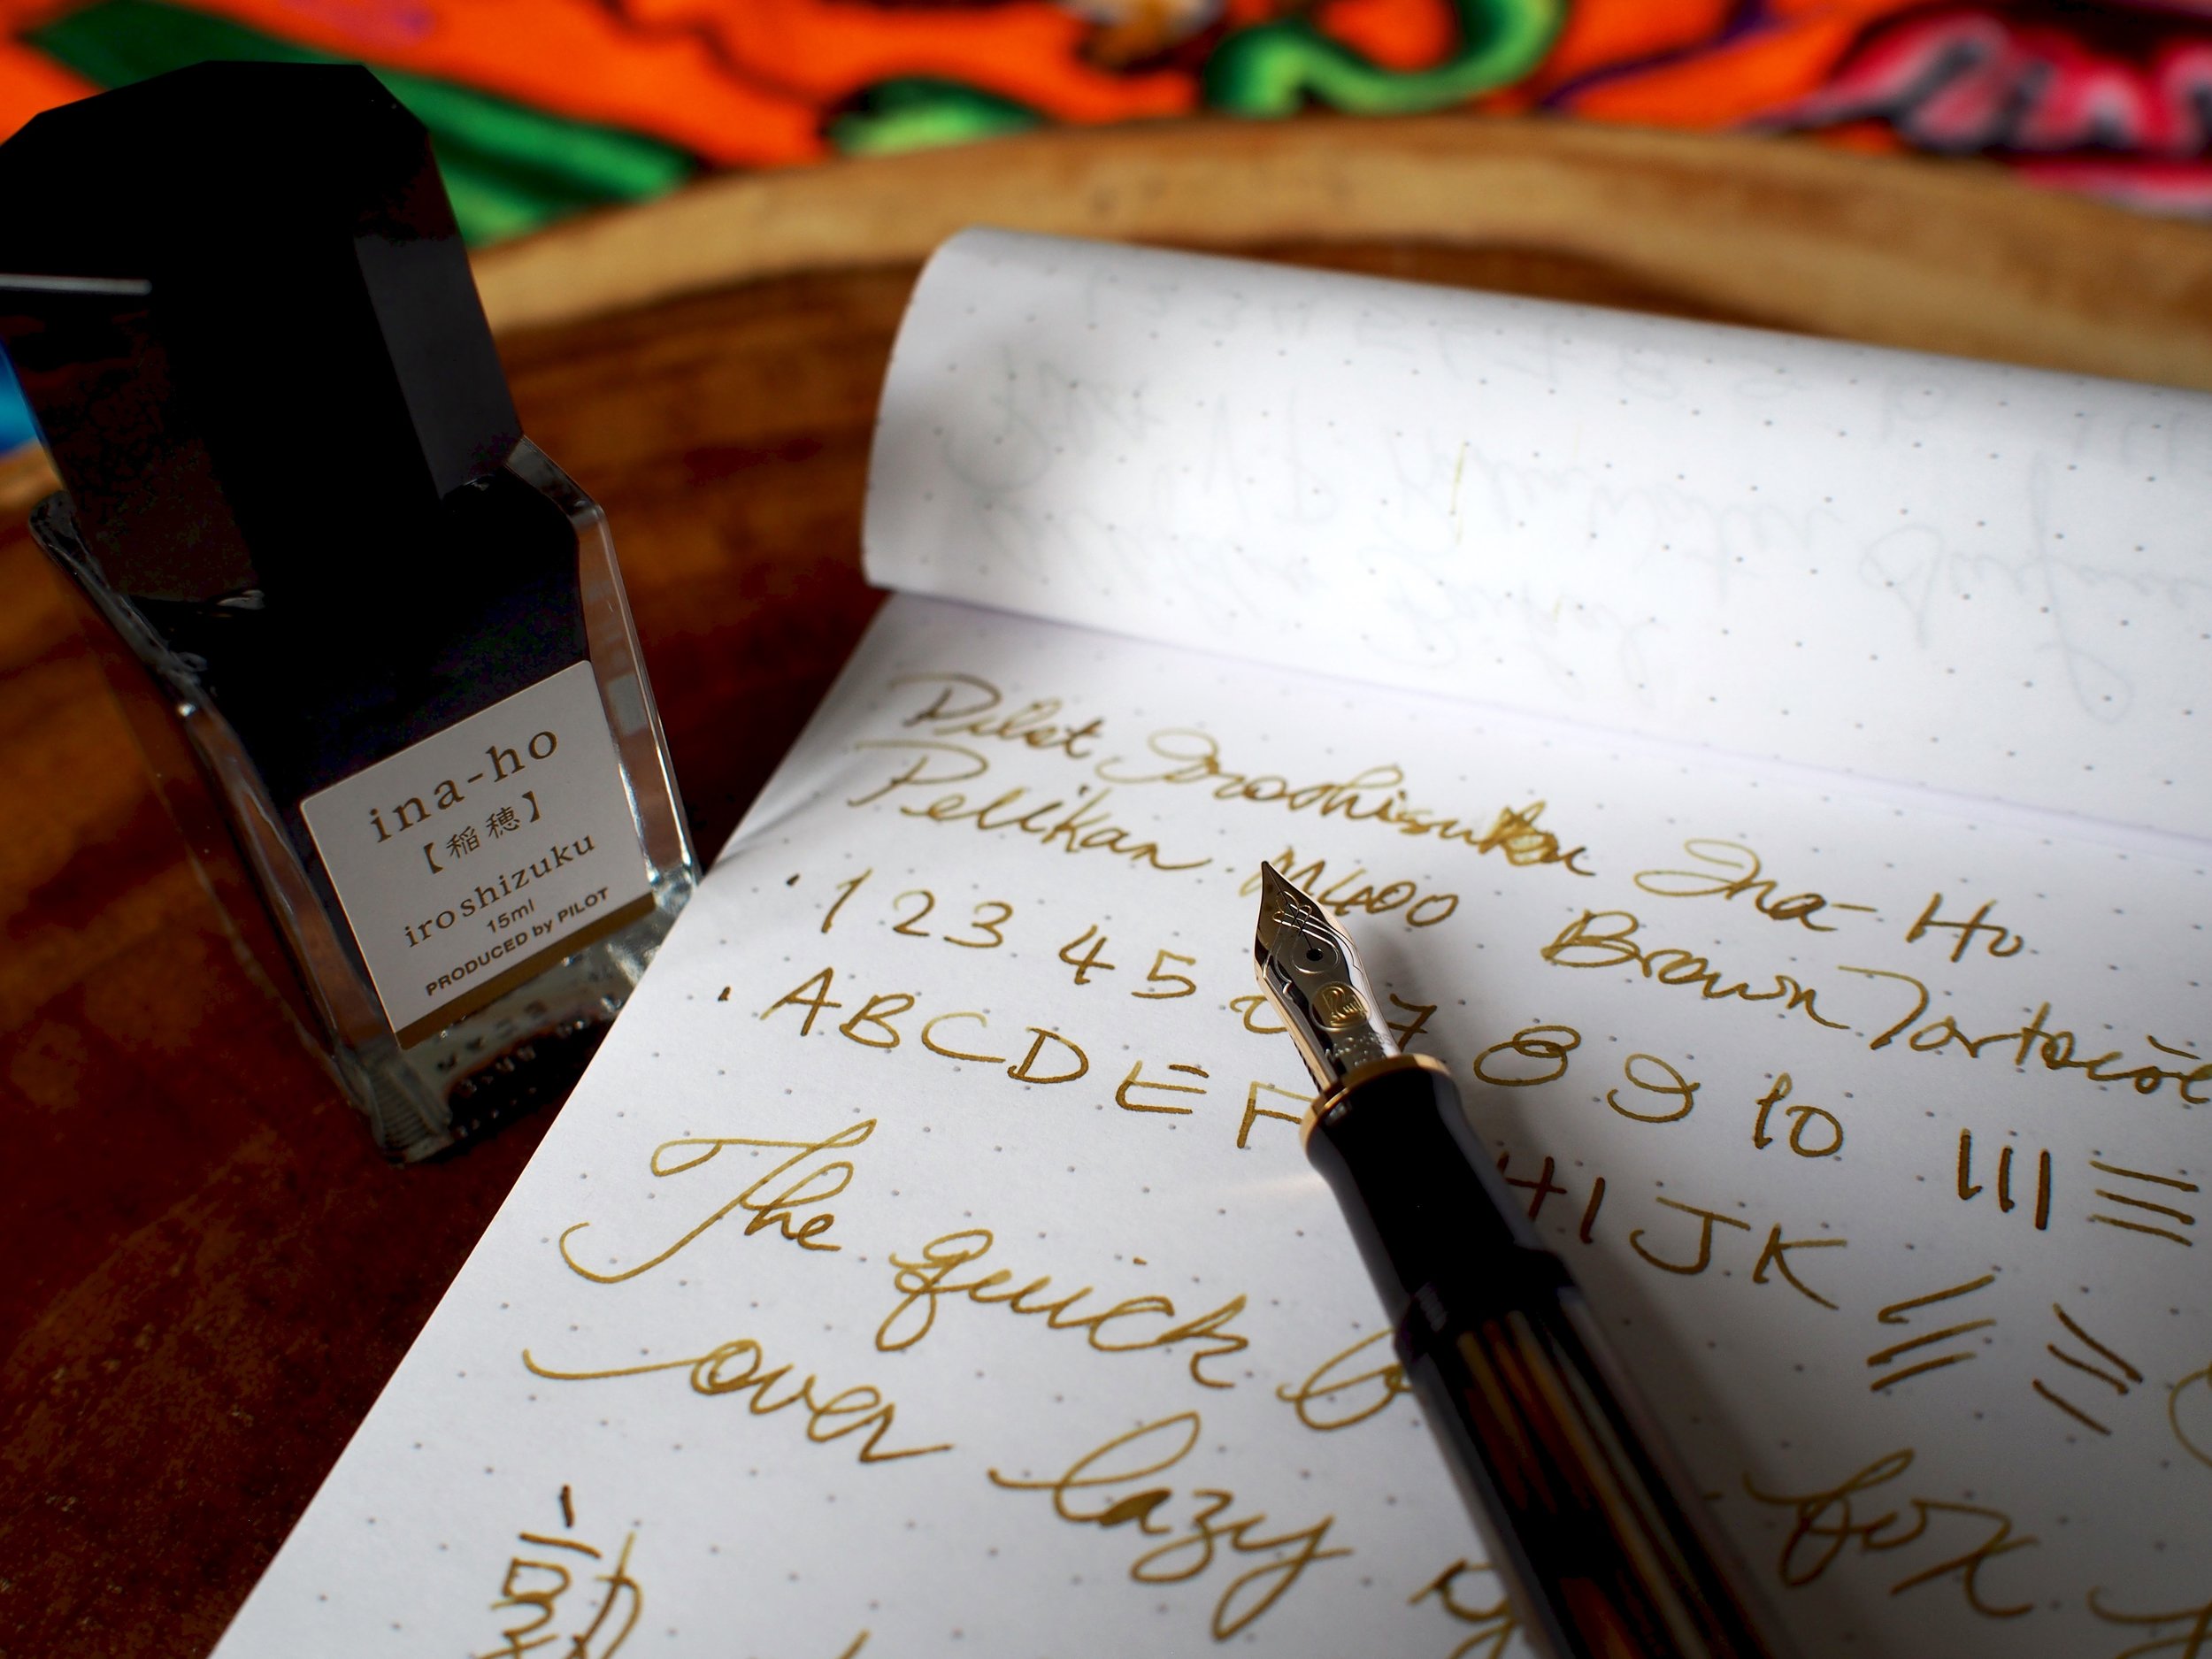 ina-ho
【稲穂】
iroshizuku
15ml
PRODUCED by PILOT
Pilot Iroshisuku Ina-Ho
Pelikan M400 Brown Tortoise
1 2 3 4 5 6 7 8 9 10
A B C D E F H I J K
The quick fox
over lazy